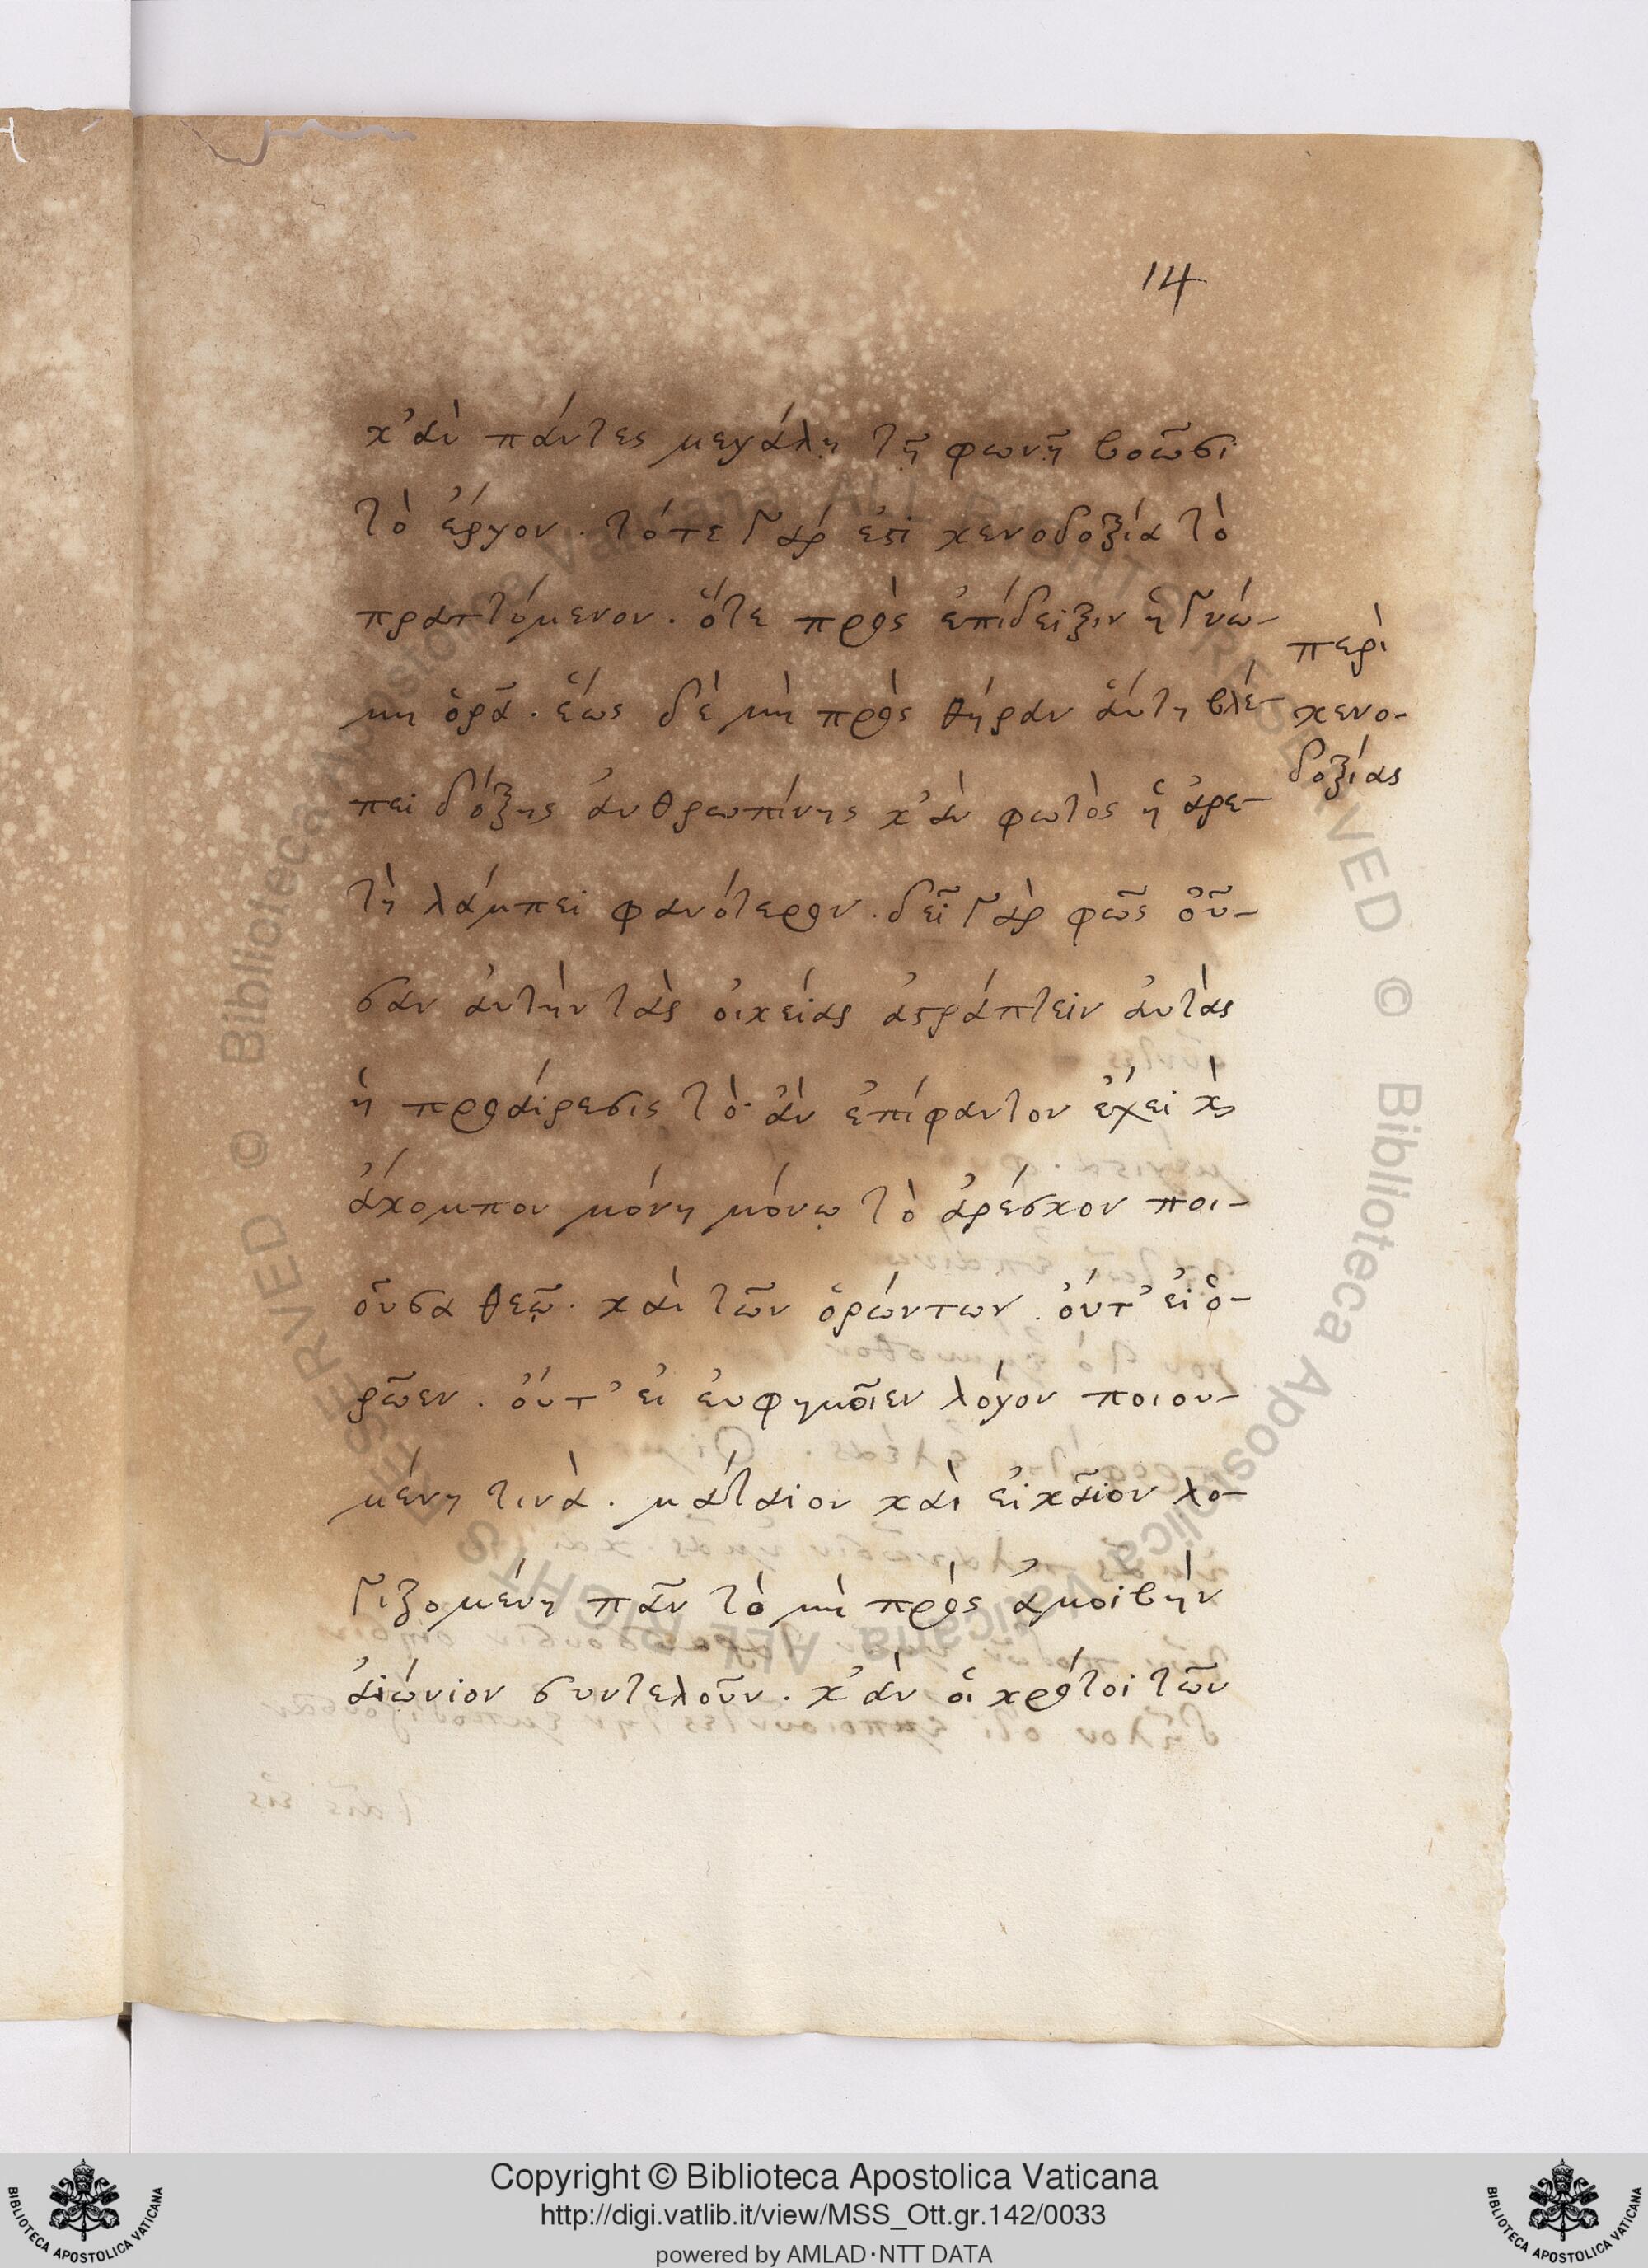 14
κ᾿ ἀν πάντες μεγάλῃ τῇ φωνῇ βοῶσι
τὸ ἔργον. τότε γάρ ἐστι κενοδοξία τὸ
πραττόμενον. ὅτε πρὸς ἐπίδειξιν ἡ γνώ-
μη ὁρᾶ. ἕως δὲ μὴ πρὸς θήραν ἅυτη βλέ-
πει δόξης ἀνθρωπίνης κ᾿ ἀν φωτὸς ἡ ἀρε-
τὴ λάμπει φανότερον. δεῖ γὰρ φῶς οὖ-
σαν ἀυτὴν τὰς ὀικείας ἀστράπτειν ἀυτὰς
ἡ προάιρεσις τὸ ἀν ἐπίφαντον ἔχει κὶ
ἄκομπον μόνη μόνῳ τὸ ἀρέσκον ποι-
οῦσα θεῷ. κὰι τῶν ὁρώντων. ὄυτ᾿ εἰ ὁ-
ρῶεν. ὄυτ᾿ ἐι ἐυφημοῖεν λόγον ποιου-
μένη τινὰ. μάταιον κὰι εἰκᾶιον λο-
γιζομένη πᾶν τὸ μὴ πρὸς ἀμοιβὴν
ἀιώνιον συντελοῦν. κ᾿ ἀν ὁι κρότοι τῶν
περὶ
κενο-
δοξίας
Copyright © Biblioteca Apostolica Vaticana
http://digi.vatlib.it/view/MSS_Ott.gr.142/0033
powered by AMLAD·NTT DATA
BIBLIOTECA APOSTOLICA VATICANA
BIBLIOTECA APOSTOLICA VATICANA